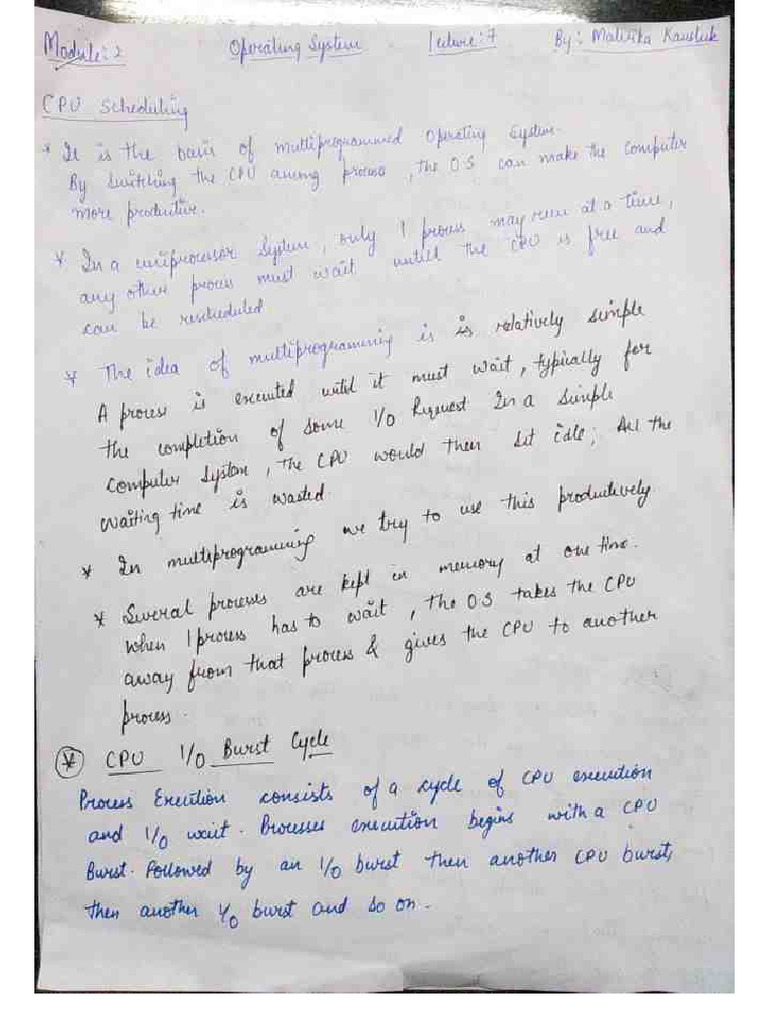 Module: 2 Operating System Lecture: 7 By: Malvika Kaushik
CPU Scheduling
* It is the basis of multiprogrammed Operating System.
By switching the CPU among process, the OS can make the computer
more productive.
* In a uniprocessor System, only 1 process may run at a time,
any other process must wait untill the CPU is free and
can be rescheduled
* The idea of multiprogramming is is relatively simple
A process is executed until it must wait, typically for
the completion of some I/O Request In a simple
Computer System, the CPU would then sit idle; All the
waiting time is wasted.
* In multiprogramming we try to use this productively
* Several processes are kept in memory at one time.
when 1 process has to wait, the OS takes the CPU
away from that process & gives the CPU to another
process.
* CPU I/O Burst Cycle
Process Execution consists of a cycle of CPU execution
and I/O wait. Processes execution begins with a CPU
Burst. Followed by an I/O burst then another CPU burst,
then another I/O burst and so on.